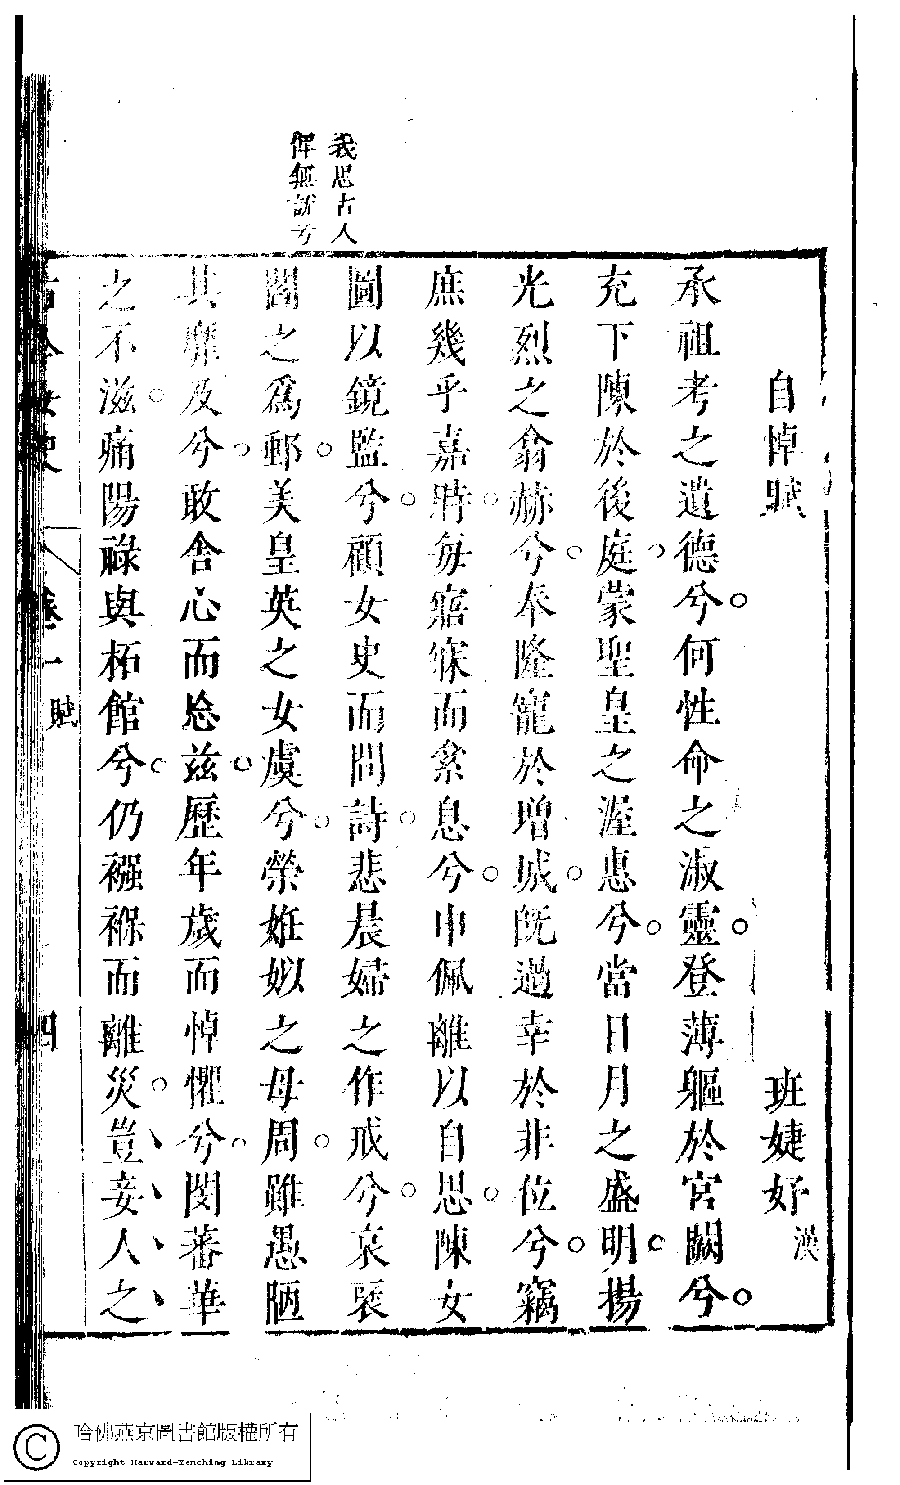 自悼賦
班婕妤 漢
承祖考之遺德兮何性命之淑靈登薄軀於宮闕兮
充下陳於後庭蒙聖皇之渥惠兮當日月之盛明揚
光烈之翕赫兮奉隆寵於增城既過幸於非位兮竊
庶幾乎嘉時每寤寐而絫息兮申佩離以自思陳女
圖以鏡監兮顧女史而問詩悲晨婦之作戒兮哀褒
閻之為郵美皇英之女虞兮榮姙姒之母周雖愚陋
其靡及兮敢舍心而忘茲歷年歲而悼懼兮閔蕃華
之不滋痛陽祿與柘館兮仍襁褓而離災豈妾人之
我思古人
俾無訧兮
古今女史
卷一
賦
四
哈佛燕京圖書館版權所有
Copyright Harvard-Yenching Library